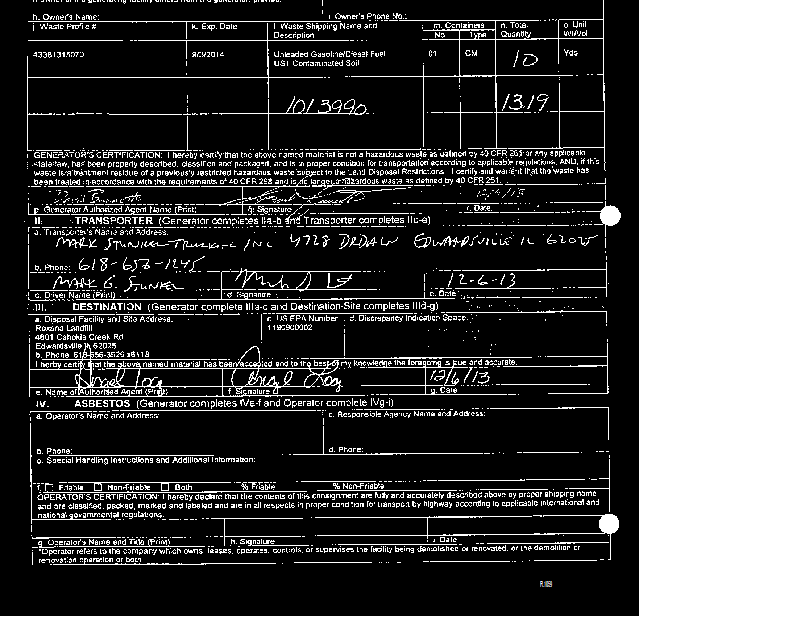 h. Owner's Name: i Owner's Phone No.:
j Waste Profile # k. Exp. Date l Waste Shipping Name and Description m. Containers No. Type n. Total Quantity o Unit Wt/Vol
Unleaded Gasoline/Diesel Fuel 01 CM 10 Yds
UST Contaminated Soil
1013990 13.19
GENERATOR'S CERTIFICATION: I hereby certify that the above named material is not a hazardous waste as defined by 40 CFR 261 or any applicable
state law, has been properly described, classified and packaged, and is in proper condition for transportation according to applicable regulations; AND, if this
waste is a treatment residue of a previously restricted hazardous waste subject to the Land Disposal Restrictions. I certify and warrant that the waste has
been treated in accordance with the requirements of 40 CFR 268 and is no longer a hazardous waste as defined by 40 CFR 261.
p. Generator Authorized Agent Name (Print) q. Signature r. Date
II. TRANSPORTER (Generator completes IIa-b and Transporter completes IIc-e)
a. Transporter's Name and Address:
MARK STUNKEL TRUCKING INC 4728 EDWARDSVILLE IL 62025
b. Phone: 618-656-1245
MARK G. STUNKEL 12-6-13
c. Driver Name (Print) d. Signature e. Date
III. DESTINATION (Generator complete IIIa-c and Destination Site completes IIId-g)
a. Disposal Facility and Site Address: c. US EPA Number d. Discrepancy Indication Space:
Roxana Landfill 1190900002
4601 Cahokia Creek Rd
Edwardsville IL 62025
b. Phone
I hereby certify that the above named material has been accepted and to the best of my knowledge the foregoing is true and accurate.
12/6/13
e. Name of Authorized Agent (Print) f. Signature g. Date
IV. ASBESTOS (Generator completes IVa-f and Operator complete IVg-i)
a. Operator's Name and Address: c. Responsible Agency Name and Address:
b. Phone: d. Phone:
e. Special Handling Instructions and Additional Information:
f. Friable Non-Friable Both % Friable % Non-Friable
OPERATOR'S CERTIFICATION: I hereby declare that the contents of this consignment are fully and accurately described above by proper shipping name
and are classified, packed, marked and labeled and are in all respects in proper condition for transport by highway according to applicable international and
national governmental regulations.
g. Operator's Name and Title (Print) h. Signature i. Date
*Operator refers to the company which owns, leases, operates, controls, or supervises the facility being demolished or renovated, or the demolition or
renovation operation or both